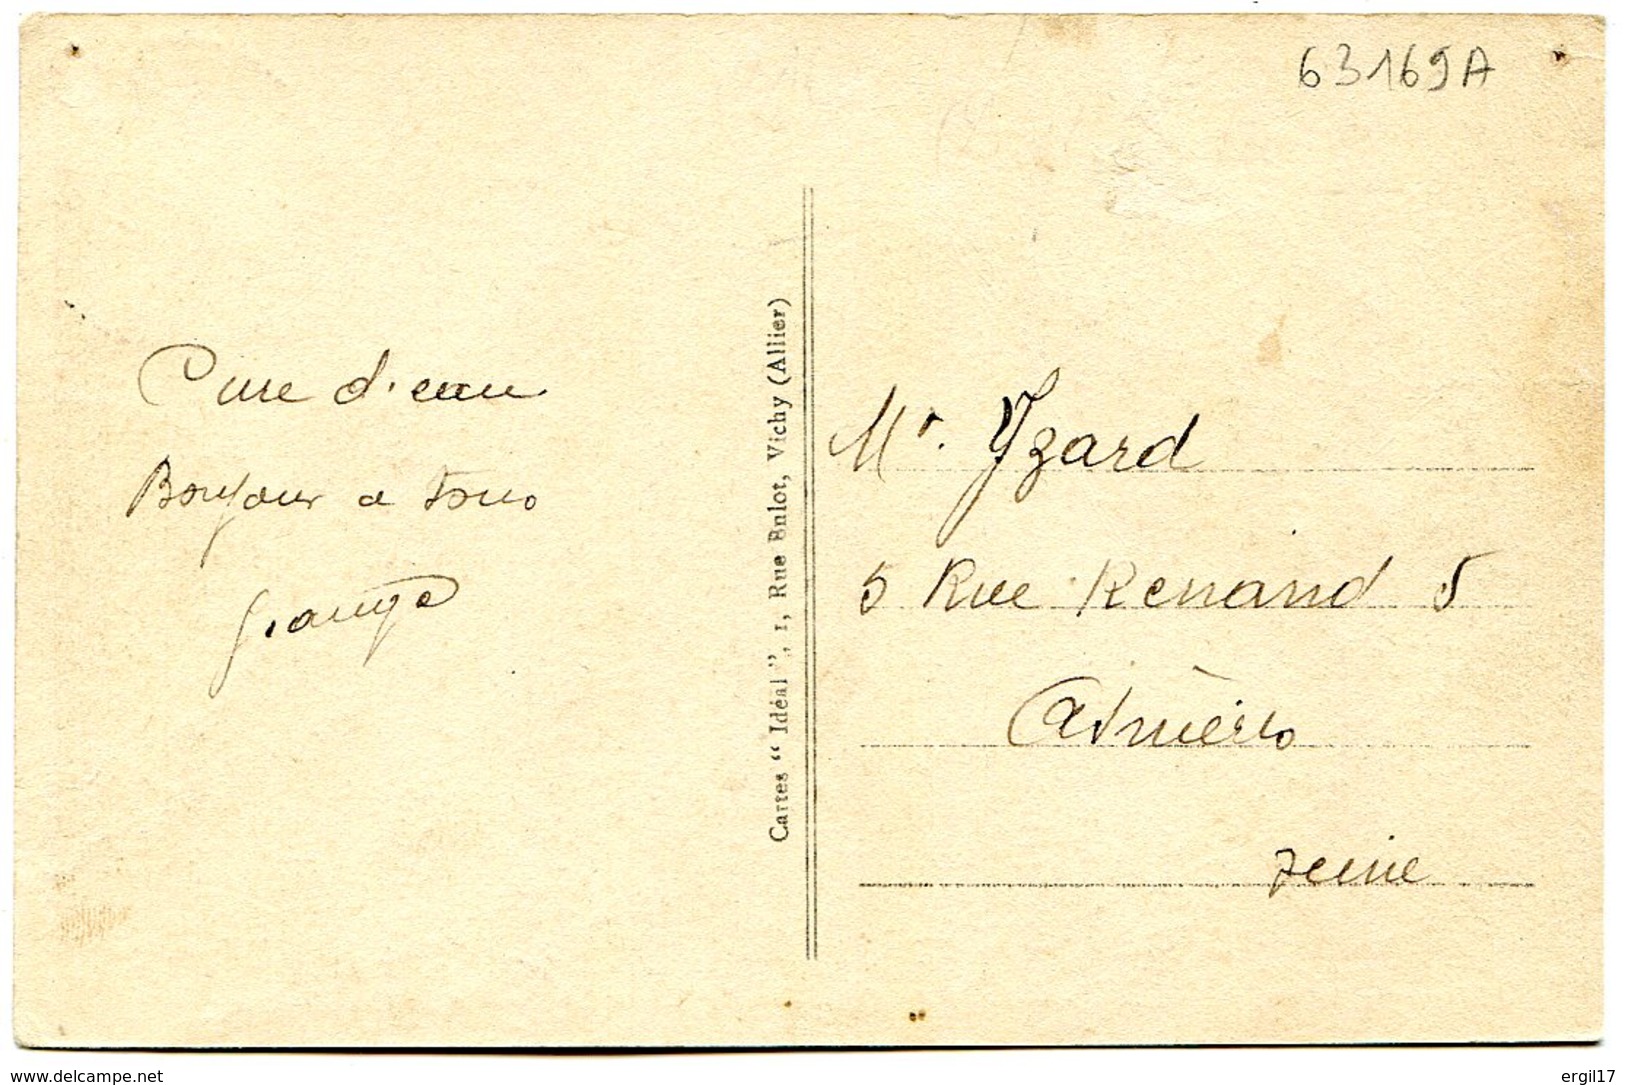 63169A
Cure d'eau
Bonjour a tous
Cartes “ Idéal ”, 1, Rue Bulot, Vichy (Allier)
Mr. Yzard
5 Rue Renand 5
Asnières
Seine
www.delcampe.net
ergil17